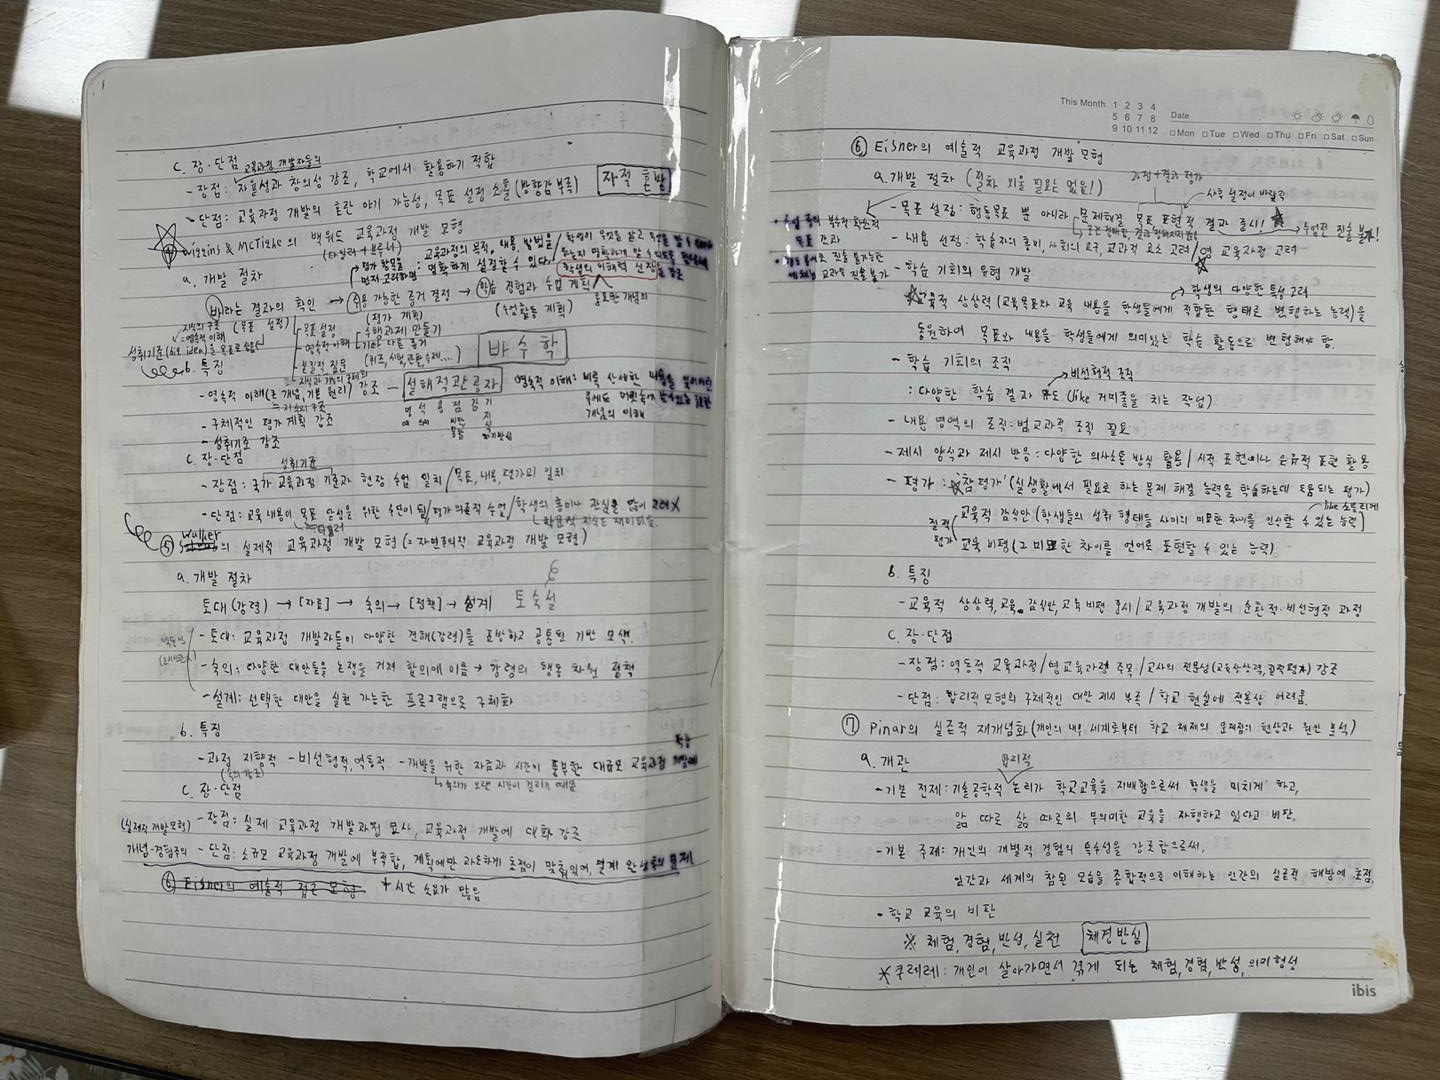 C. 장·단점 교육과정 개발자들의
- 장점: 자율성과 창의성 강조, 학교에서 활용하기 적합
- 단점: 교육과정 개발의 혼란 야기 가능성, 목표 설정 소홀(방향감 부족)
자적 혼방
④ Wiggins & McTighe의 백워드 교육과정 개발 모형
(타일러 + 브루너)
a. 개발 절차
평가 항목을 먼저 고려하면
교육과정의 목적, 내용, 방법을 명확하게 설정할 수 있다.
학생의 이해력 신장을
바라는 결과의 확인 → 수용 가능한 증거 결정 → 학습 경험과 수업 계획
(목표 설정)
(평가 계획)
(수업활동 계획)
지식의 구조 = 영속적 이해
중요한 개념의
- 목표 설정
- 영속적 이해
- 본질적 질문
수행과제 만들기
기타 다른 증거
(퀴즈, 시험, 관찰, 숙제...)
바 수 학
b. 특징
- 영속적 이해(큰 개념, 기본 원리) 강조 - 설해적관공자
= 지식의 구조
영속적 이해: 비록 상세한 내용을
개념의 이해
- 구체적인 평가 계획 강조
- 성취기준 강조
C. 장·단점
성취기준
- 장점: 국가 교육과정 기준과 현장 수업 일치 / 목표, 내용, 평가의 일치
- 단점: 교육내용이 목표 달성을 위한 수단이 됨 / 평가 의존적 수업 / 학생의 흥미나 관심을 많이 고려X
= 타일러
⑤ Walker의 실제적 교육과정 개발 모형(= 자연주의적 교육과정 개발 모형)
a. 개발 절차
토대(강령) → [자료] → 숙의 → [정책] → 설계
토숙설
- 토대: 교육과정 개발자들이 다양한 견해(강령)를 표방하고 공통된 기반 모색.
- 숙의: 다양한 대안들을 논쟁을 거쳐 합의에 이름 → 강령의 행동 차원 정책
- 설계: 선택한 대안을 실천 가능한 프로그램으로 구체화
b. 특징
- 과정 지향적 - 비선형적, 역동적 - 개발을 위한 자금과 시간이 풍부한 대규모 교육과정 개발에 적합
(숙의 강조)
숙의가 오랜 시간이 걸리기 때문
C. 장·단점
(실제적 개발모형) - 장점: 실제 교육과정 개발과정 묘사, 교육과정 개발에 대화 강조
개념-경험주의 - 단점: 소규모 교육과정 개발에 부적합, 계획에만 과도하게 초점이 맞춰있어, 설계 완성후의 문제
⑥ Eisner의 예술적 접근 모형
+ 시간 소모가 많음
This Month 1 2 3 4 5 6 7 8 9 10 11 12
Date
Mon Tue Wed Thu Fri Sat Sun
⑥ Eisner의 예술적 교육과정 개발 모형
a. 개발 절차 (절차 외울 필요는 없음!)
과정 + 결과 평가
사후 설정이 바람직
- 목표 설정: 행동목표 뿐 아니라 문제해결 목표, 표현적 결과 중시!
수업전 진술 불가!
- 내용 선정: 학습자의 흥미, 사회의 요구, 교과적 요소 고려 / 영 교육과정 고려
- 학습 기회의 유형 개발
학생의 다양한 특성 고려
교육적 상상력(교육목표와 교육 내용을 학생들에게 적합한 형태로 변형하는 능력)을
동원하여 목표와 내용을 학생들에게 의미있는 학습 활동으로 변형해야 함.
- 학습 기회의 조직
비선형적 조직
: 다양한 학습 결과 유도(like 거미줄을 치는 작업)
- 내용 영역의 조직: 범교과적 조직 필요
- 제시 양식과 제시 반응: 다양한 의사소통 방식 활용 / 시적 표현이나 은유적 표현 활용
- 평가: '참평가'(실생활에서 필요로 하는 문제 해결 능력을 학습하는데 도움되는 평가)
like 소믈리에
질적 평가
교육적 감식안(학생들의 성취 형태들 사이의 미묘한 차이를 인식할 수 있는 능력)
교육 비평(그 미묘한 차이를 언어로 표현할 수 있는 능력)
b. 특징
- 교육적 상상력, 교육적 감식안, 교육 비평 중시 / 교육과정 개발의 순환적·비선형적 과정
C. 장·단점
- 장점: 역동적 교육과정 / 영교육과정 주목 / 교사의 전문성(교육상상력, 질적평가) 강조
- 단점: 합리적모형의 구체적인 대안 제시 부족 / 학교 현실에 적용상 어려움
⑦ Pinar의 실존적 재개념화(개인의 내부 세계로부터 학교 체제의 문제점의 현상과 원인 분석)
a. 개관
합리적
- 기본 전제: 기술공학적 논리가 학교교육을 지배함으로써 학생을 미치게 하고,
앎 따로 삶 따로의 무의미한 교육을 자행하고 있다고 비판.
- 기본 주제: 개인의 개별적 경험의 특수성을 강조함으로써,
인간과 세계의 참된 모습을 종합적으로 이해하는 인간의 실존적 해방에 초점.
- 학교 교육의 비판
※ 체험, 경험, 반성, 실천 체경반실
* 쿠레레: 개인이 살아가면서 겪게 되는 체험, 경험, 반성, 의미형성
ibis